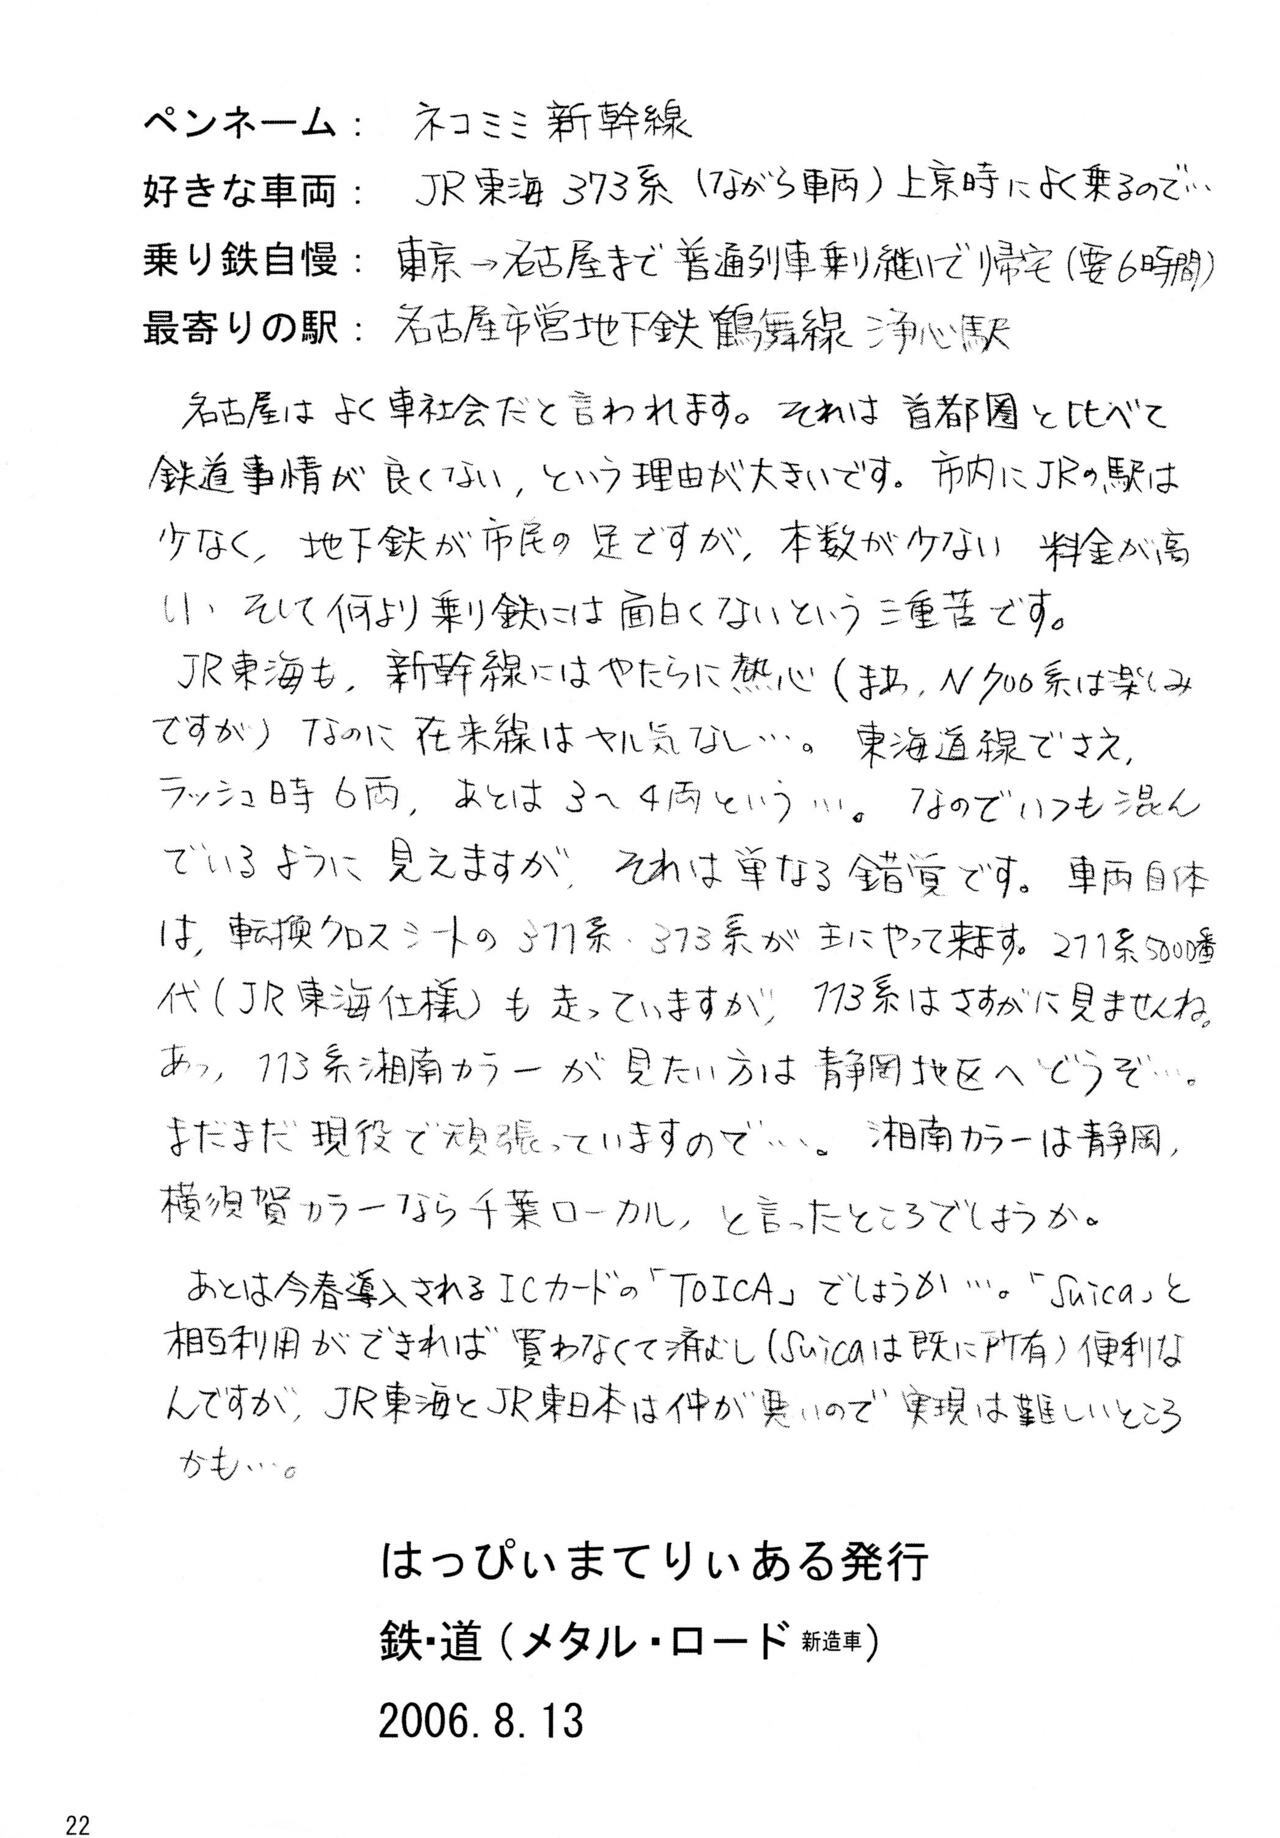 ペンネーム： ネコミミ新幹線
好きな車両： JR東海 373系（ながら車両）上京時によく乗るので…
乗り鉄自慢： 東京→名古屋まで普通列車乗り継いで帰宅（要6時間）
最寄りの駅： 名古屋市営地下鉄 鶴舞線 浄心駅
名古屋はよく車社会だと言われます。それは首都圏と比べて
鉄道事情が良くない、という理由が大きいです。市内にJRの駅は
少なく、地下鉄が市民の足ですが、本数が少ない 料金が高
い そして何より乗り鉄には面白くないという三重苦です。
JR東海も、新幹線にはやたらに熱心（まぁ、N700系は楽しみ
ですが）なのに在来線はヤル気なし…。東海道線でさえ、
ラッシュ時6両、あとは3〜4両という…。なのでいつも混ん
でいるように見えますが、それは単なる錯覚です。車両自体
は、転換クロスシートの311系・313系が主にやって来ます。211系5000番
代（JR東海仕様）も走っていますが、113系はさすがに見ませんね。
あっ、113系湘南カラーが見たい方は静岡地区へどうぞ…。
まだまだ現役で頑張っていますので…。湘南カラーは静岡、
横須賀カラーなら千葉ローカル、と言ったところでしょうか。
あとは今春導入されるICカードの「TOICA」でしょうか…。「Suica」と
相互利用ができれば買わなくて済むし（Suicaは既に所有）便利な
んですが、JR東海とJR東日本は仲が悪いので実現は難しいところ
かも…。
はっぴぃまてりぃある発行
鉄・道（メタル・ロード 新造車）
2006.8.13
22